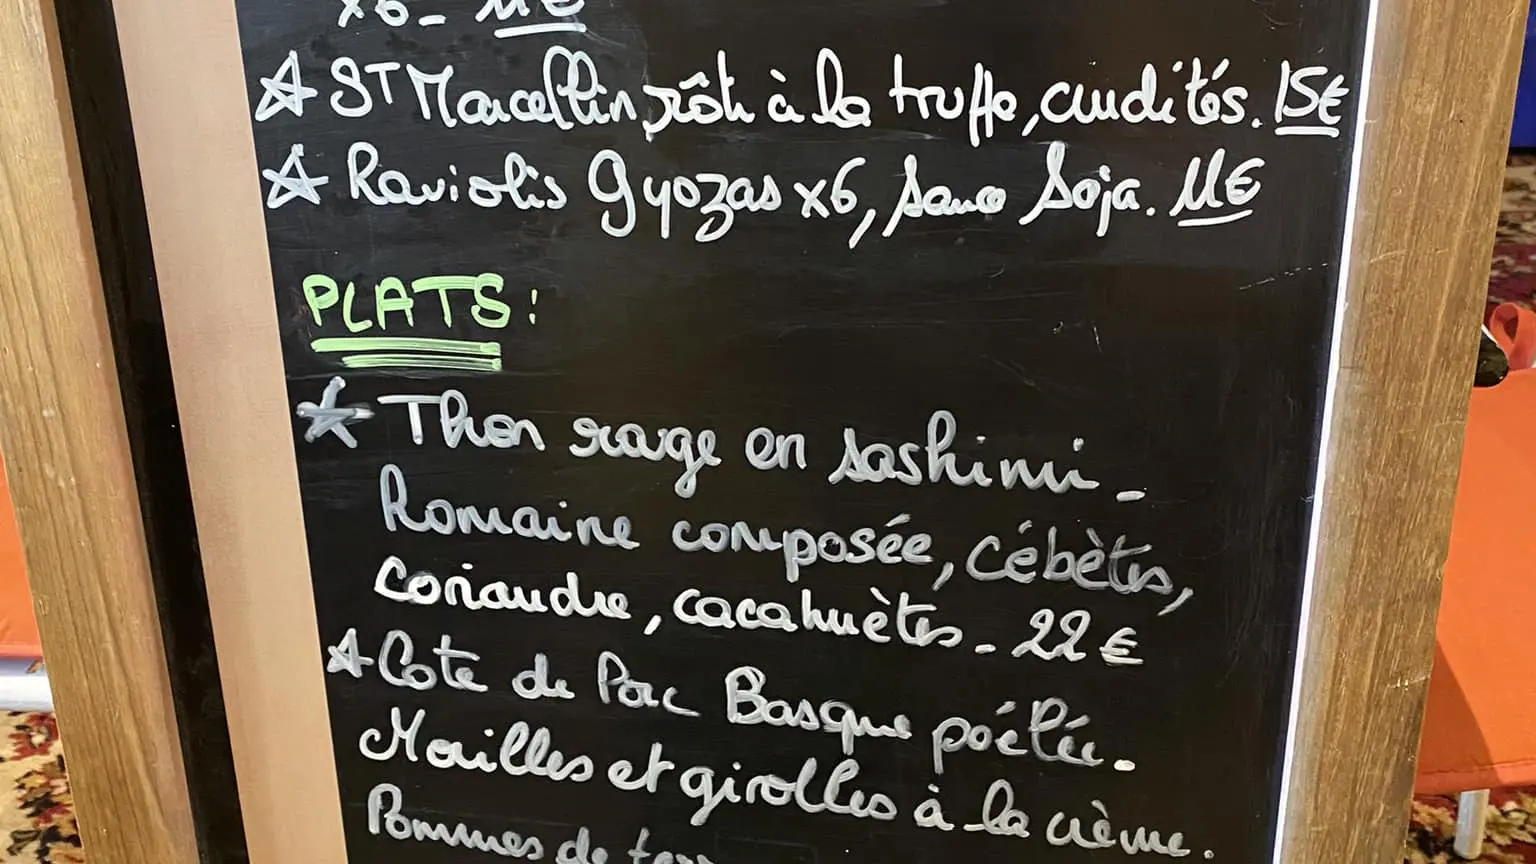 x6_ 11€
☆ ST Marcellin, rôti à la truffe, crudités. 15€
☆ Raviolis Gyozas x6, sauce Soja. 11€
PLATS:
☆ Thon rouge en sashimi_
Romaine composée, cébètes,
Coriandre, cacahuètes_ 22€
☆ Côte de Porc Basque poêlée.
Morilles et girolles à la crème.
Pommes de